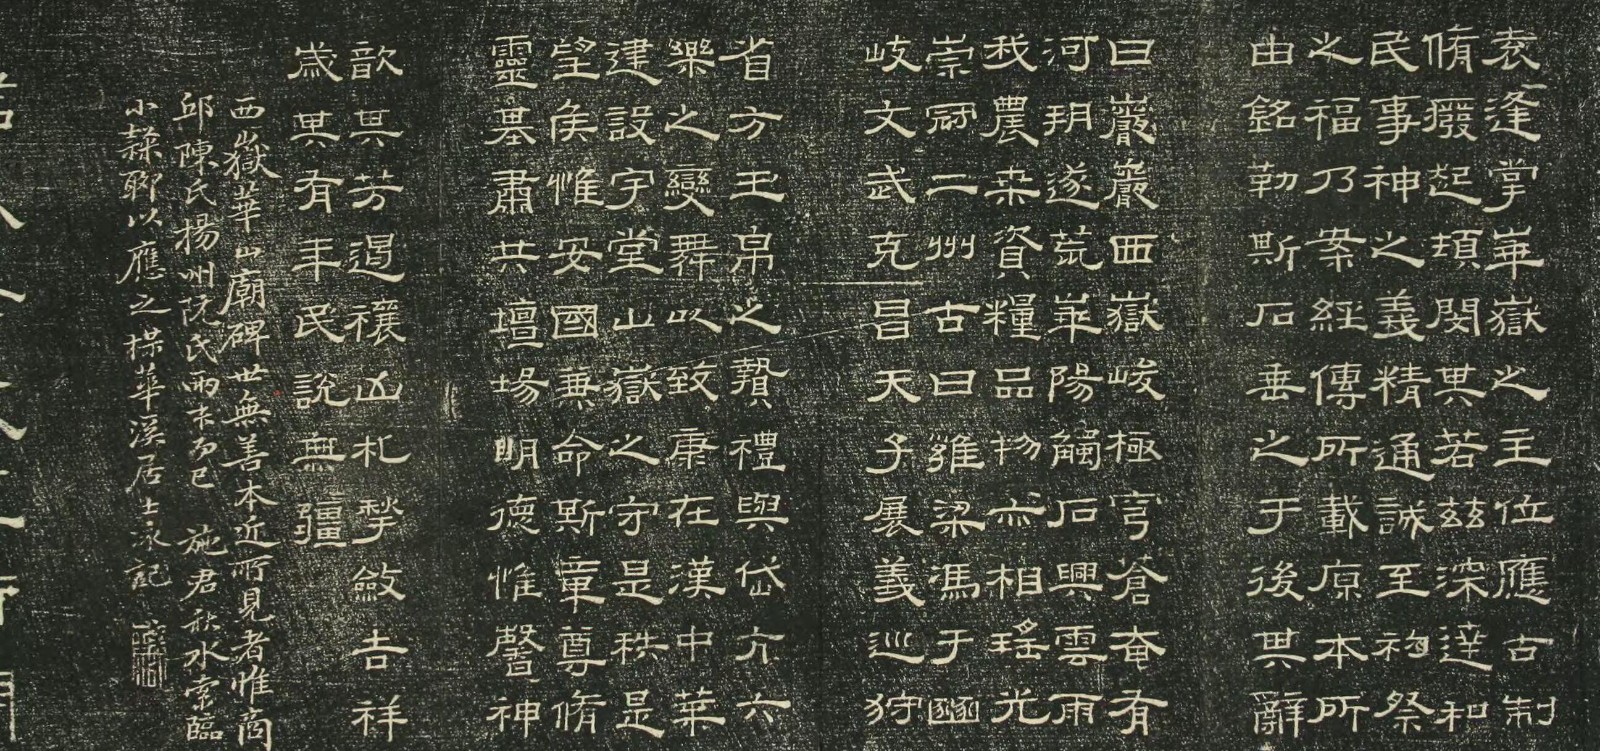 袁逢掌崋嶽之主位應古制
脩癈起頓閔其若茲深達和
民事神之義精通誠至礿祭
之福乃案經傳所載原本所
由銘勒斯石垂之于後其辭
曰巖巖西嶽峻極穹蒼奄有
河朔遂荒崋陽觸石興雲雨
我農桒資糧品物亦相瑤光
崇冠二州古曰雍梁馮于豳
岐文武克昌天子展義巡狩
省方玉帛之贄禮與岱亢六
樂之變舞以致康在漢中葉
建設宇堂山嶽之守是秩是
望侯惟安國兼命斯章尊脩
靈基肅共壇場明德惟馨神
歆其芳遏禳凶札揫斂吉祥
歲其有年民說無疆
西嶽華山廟碑世無善本近所見者惟商
邱陳氏揚州阮氏兩本而已 施君秋水索臨
小隸聊以應之 華溪居士泳記